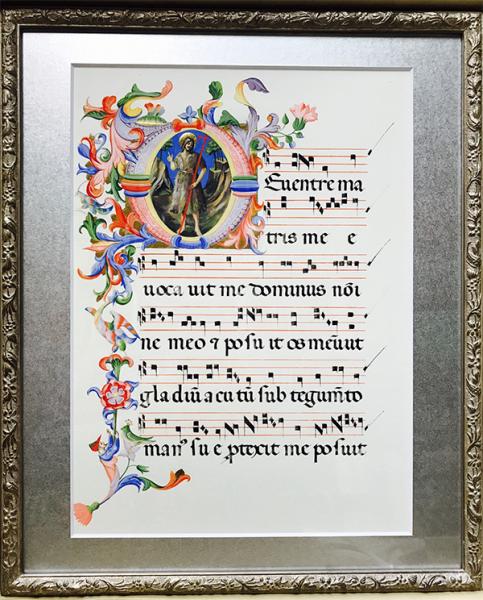 DEuentre ma
tris me e
uoca uit me dominus nōi
ne meo ⁊ po su it os meū ut
gla diū a cu tū sub tegum̄to
manꝰ su e ꝓtexit me po suit